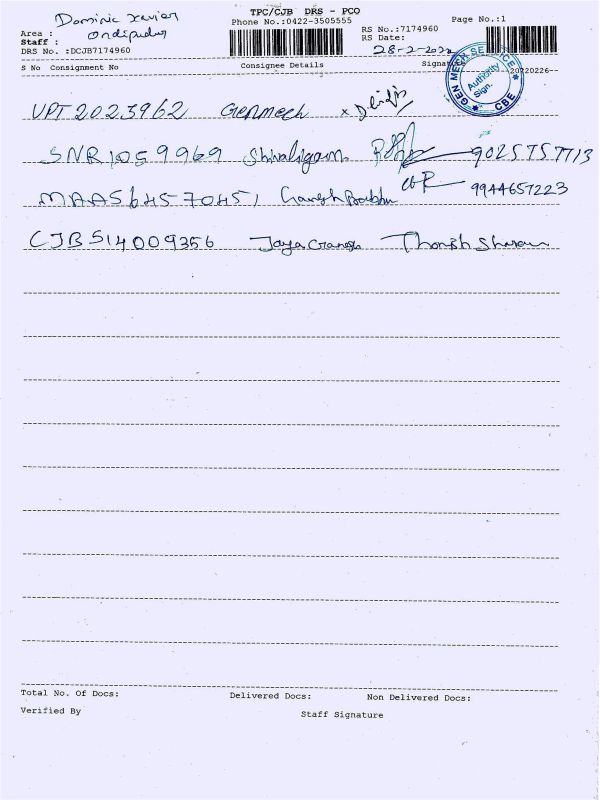 TPC/CJB DRS - PCO
Dominic Xavier
Phone No.:0422-3505555
Page No.:1
Area : Ondipudur
RS No.:7174960
Staff :
RS Date: 28-2-2022
DRS No. :DCJB7174960
S No Consignment No Consignee Details Signature 20220226
GEN MECH SERVICE
Authority Sign.
CBE
VPT 2023962 Genmech
SNR1059969 Shivaligam 9025757713
MAA564570451 Ganesh Prabhu 9944657223
CJB514009356 Jaya
Total No. Of Docs: Delivered Docs: Non Delivered Docs:
Verified By Staff Signature